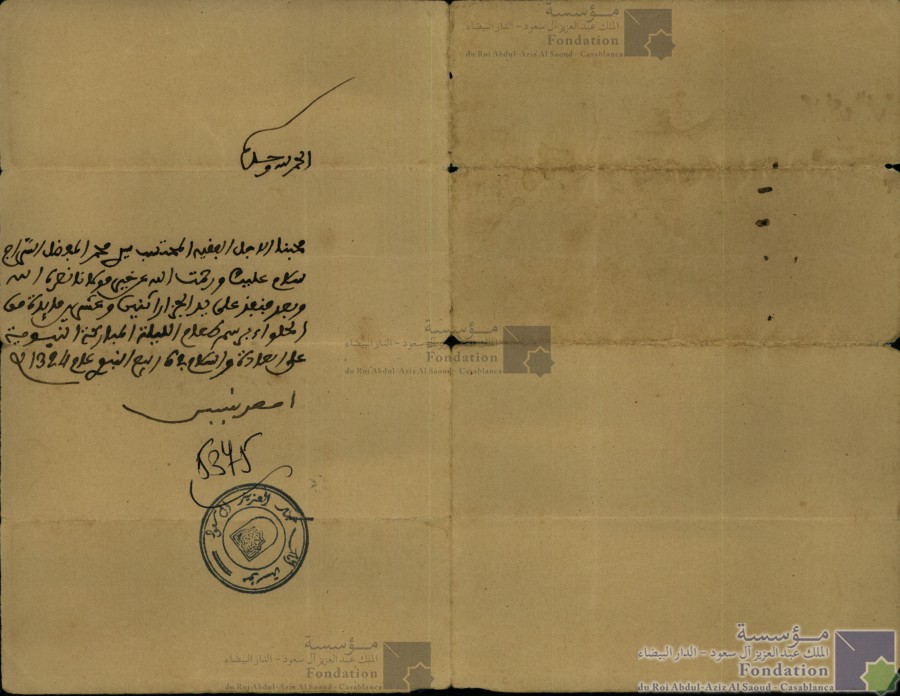 مؤسسة
الملك عبد العزيز آل سعود - الدار البيضاء
Fondation
du Roi Abdul-Aziz Al Saoud - Casablanca
الحمد لله وحده
محبنا الاجل الفقيه المحتسب سي محمد المفضل السراج
سلام عليك ورحمت الله عن خير مولانا نصره الله
وبعد فنفذ على يد الجزار اثنين وعشرين
الحلواء برسم طعام الليلة المباركة النبوية
على العادة والسلام في ربيع النبوي عام 1324
احمد بنيس
5345
مؤسسة
الملك عبد العزيز آل سعود - الدار البيضاء
Fondation
du Roi Abdul-Aziz Al Saoud - Casablanca
مؤسسة الملك عبد العزيز آل سعود
مؤسسة
الملك عبد العزيز آل سعود - الدار البيضاء
Fondation
du Roi Abdul-Aziz Al Saoud - Casablanca
مؤسسة
الملك عبد العزيز آل سعود - الدار البيضاء
Fondation
du Roi Abdul-Aziz Al Saoud - Casablanca